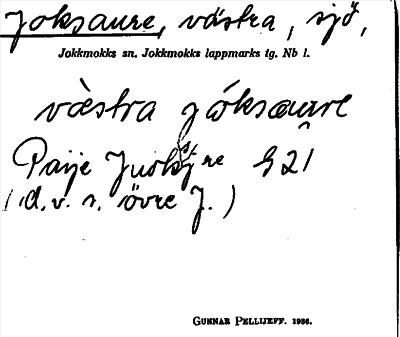 Joksaure, västra, sjö,
Jokkmokks sn. Jokkmokks lappmarks tg. Nb l.
västra jòksaure
Paije
(d.v.s. övre J.)
GUNNAR PELLIJEFF. 1956.